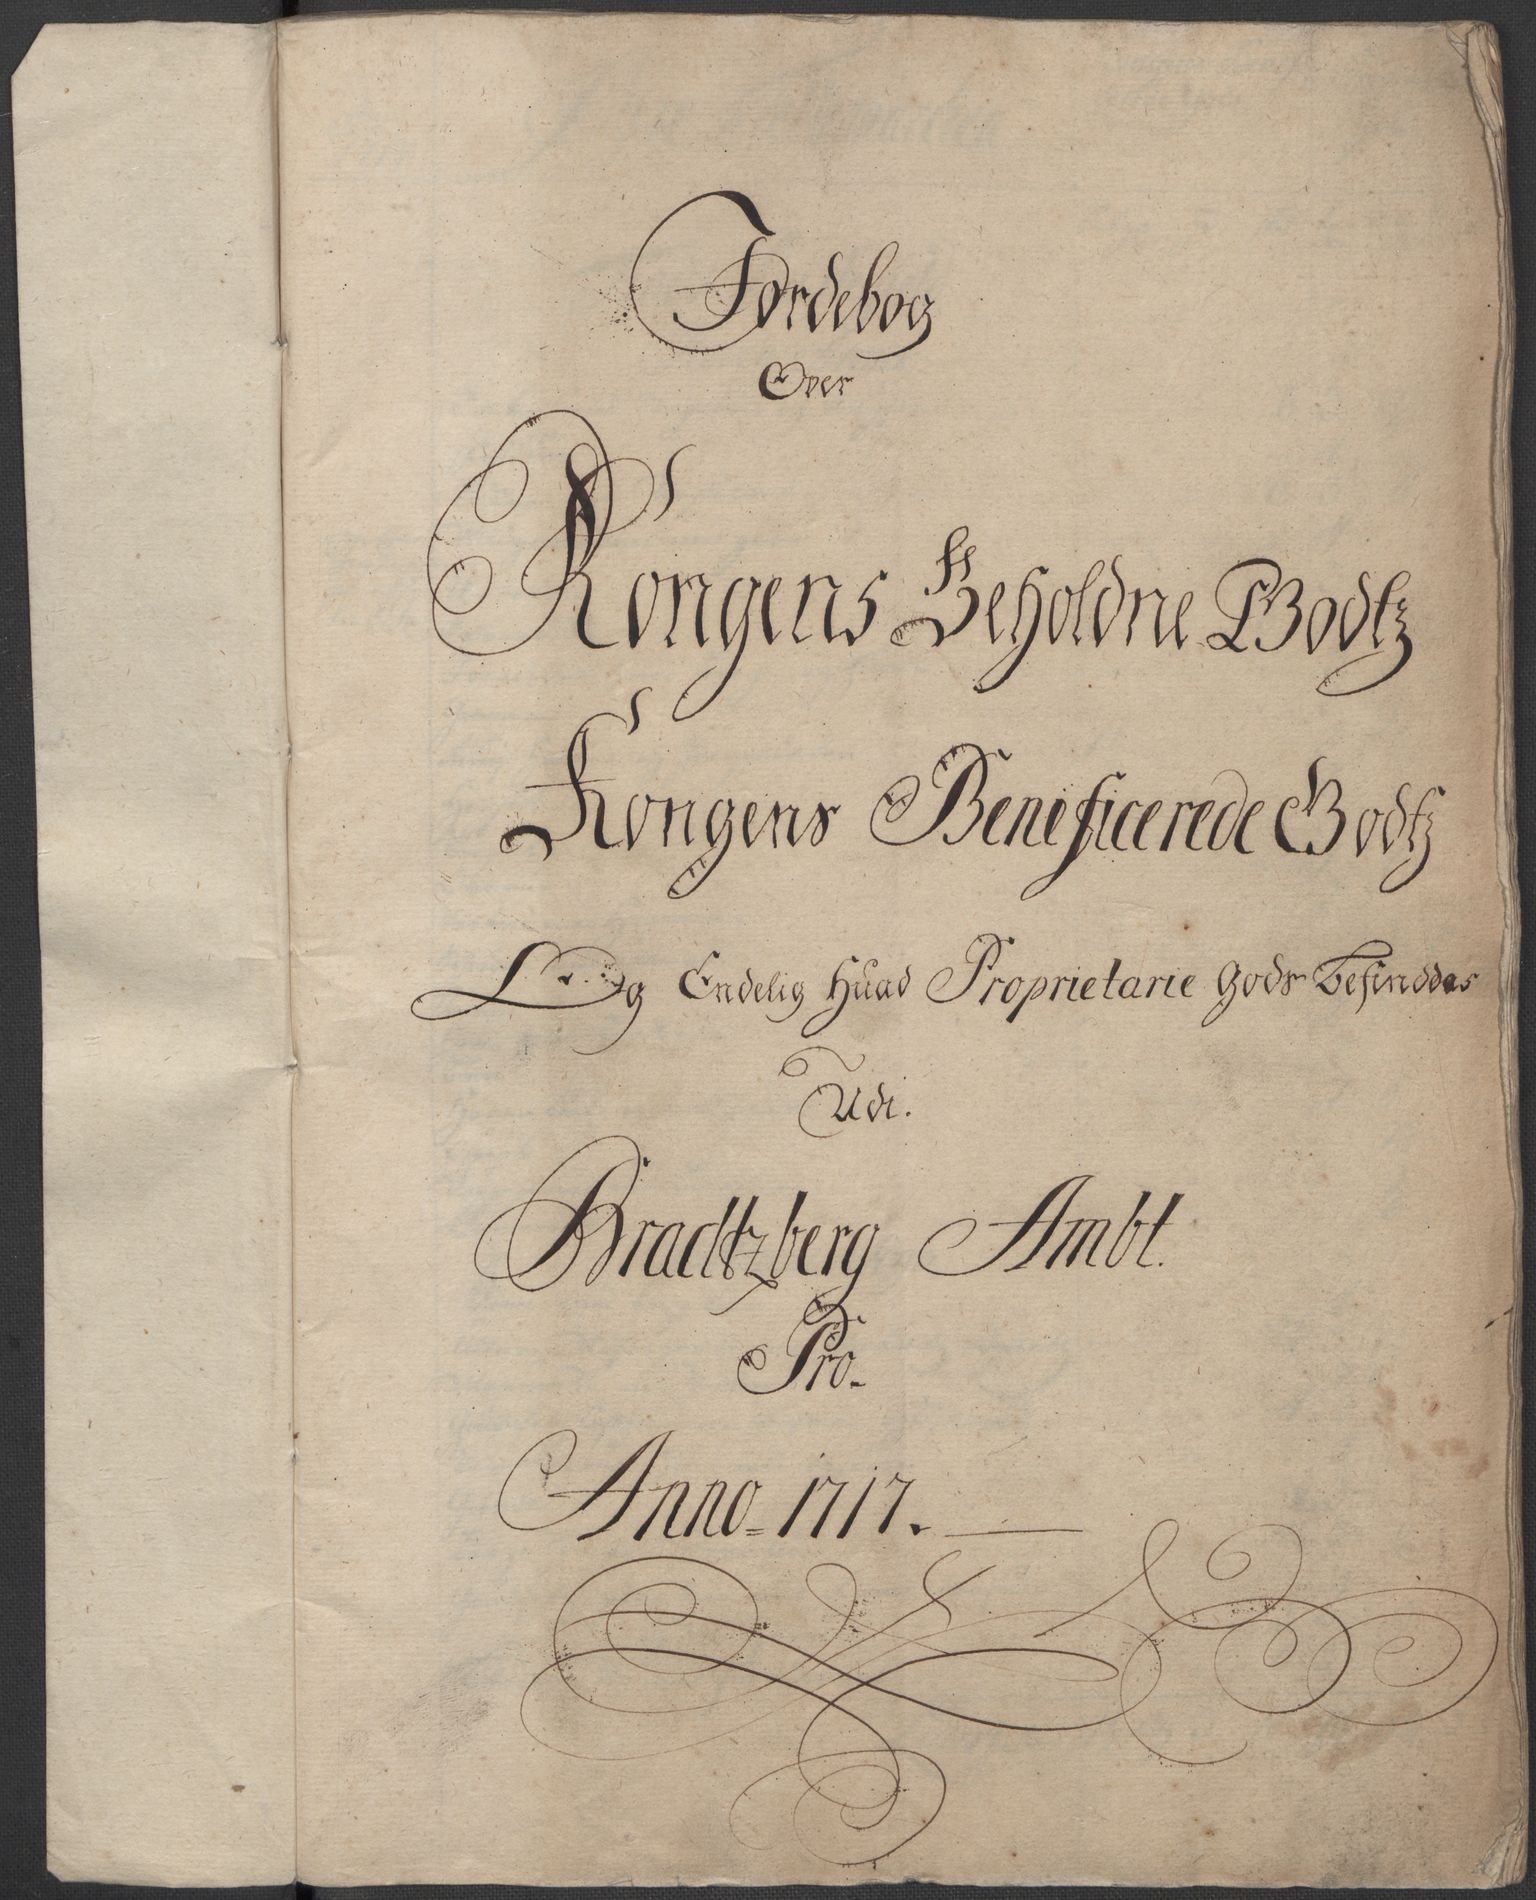 Jordebog
Over
Kongens Beholdne Godtz
Kongens Beneficerede Godtz
Og Endelig Huad Proprietarie Gods befinddes
Udi.
Bradtzberg Ambt.
Pro.
Anno= 1717.